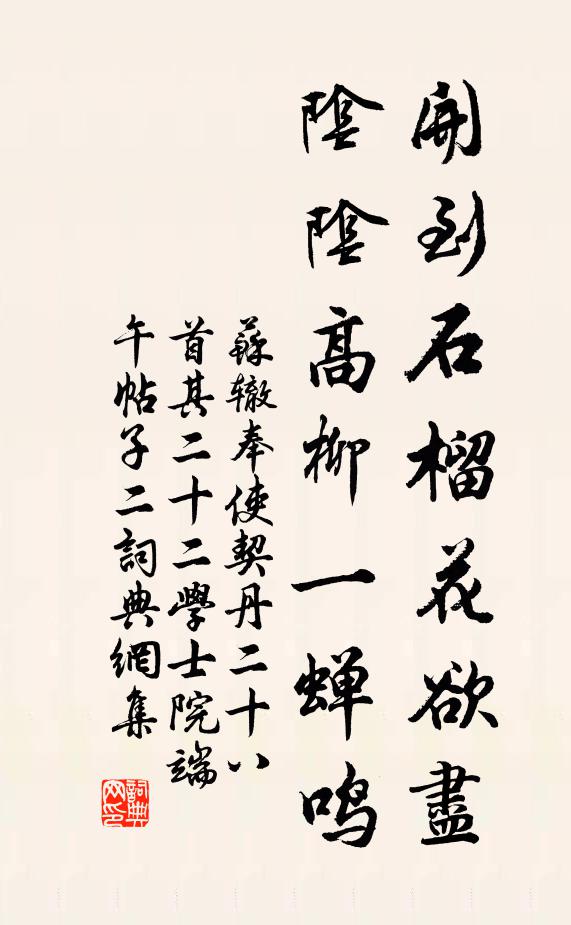 開到石榴花欲盡
陰陰高柳一蝉鸣
蘇辙奉使契丹二十八
首其二十二學士院端
午帖子二詞典網集
詞典网印